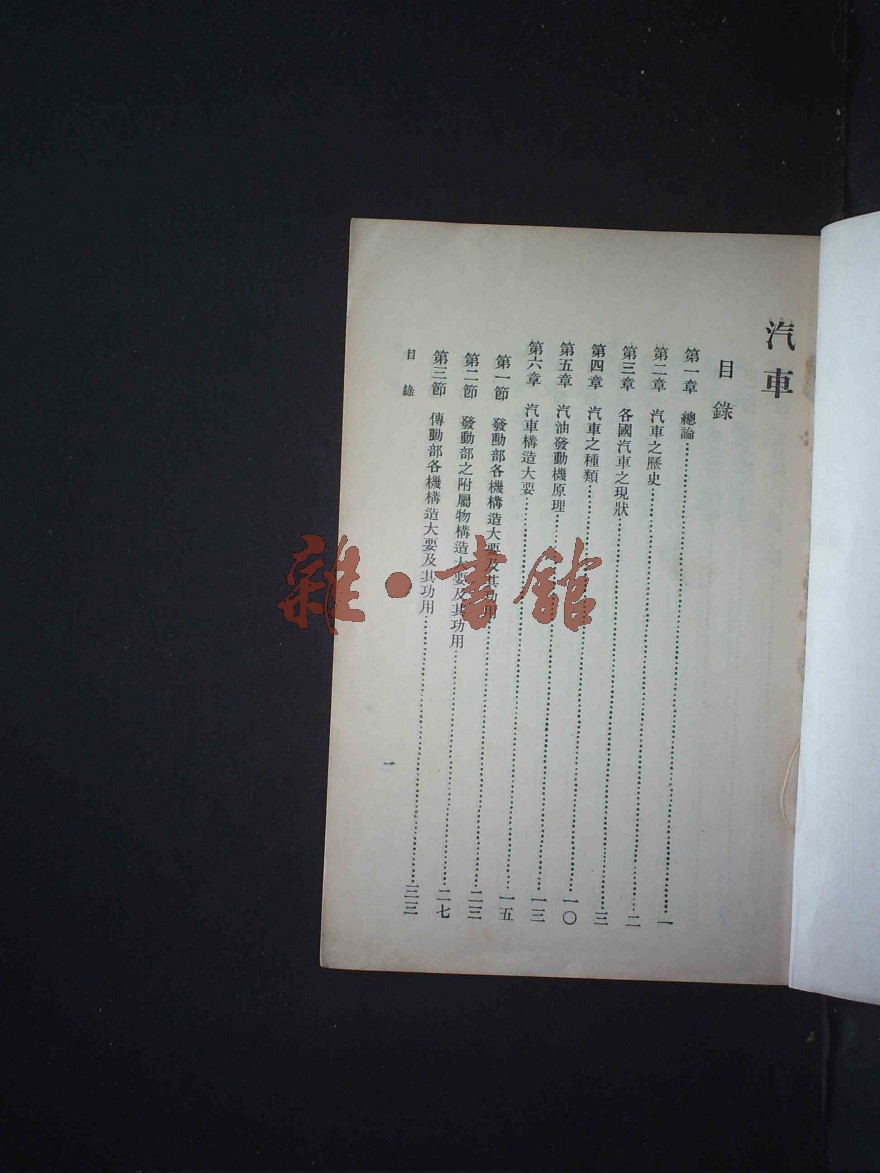 汽車
目錄
第一章 總論……一
第二章 汽車之歷史……二
第三章 各國汽車之現狀……三
第四章 汽車之種類……一〇
第五章 汽油發動機原理……一三
第六章 汽車構造大要……一五
第一節 發動部各機構造大要及其功用……二三
第二節 發動部之附屬物構造大要及其功用……二七
第三節 傳動部各機構造大要及其功用……三三
目錄
一
雜·書館